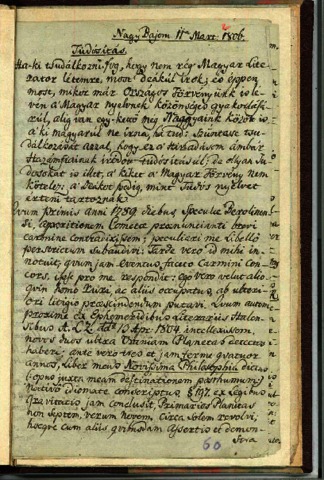 Nagy Bajom 11a Mart. 1806.
Túdósítás.
Ha ki tsudálkozni fog, hogy nem rég Magyar Lite-
rator létemre, most Deákúl írok; és éppen
most, mikor már Országos Törvényünk is lé-
vén a Magyar nyelvnek közönséges gyakorlásá-
rúl, alig van egy-kettő még Nagyaink között is
a' ki magyarúl ne írna, 's tud: Szüntesse tsu-
dálkozását azzal, hogy ez a' túdósítás ámbár
Hazámfiainak íródou túdósításúl; de olyan Tu-
dósokat is illet, a' kiket a' Magyar Törvény nem
kötelez: a' deákot pedig, mint Túdós nyelvet
érteni tartoznak.
Cum primis anni 1789 diebus Speculae Berolinen-
sis, apparitionem Cometae praenunciantis brevi
carmine contradixissem; peculiari me libello
perstrictum subaudivi: Tarde vero id mihi in-
notuit, quum jam eventus, faceto Carmini con-
cors, ipse pro me respondit: Ego vero velut alio-
quin homo Ruri, ac aliis occupatus, ab ulteri-
ori litigio praescindendum putavi. Quum autem
proxime ex Ephemeridibus literariis Halen-
sibus A. L. Z. 13 Apr. 1804. intellexissem,
novos duos ultra Uraniam Planetas detectos
haberi; ante vero ideo et jam ferme quatuor
annos, Liber meus Novissima Philosophia dictus
(opus juxta meam destinationem posthumum)
nativo idiomate conscriptus, § 197. ex legibus
Gravitatio jam conclusit, Primarios Planetas
non septem, verum novem circa solem revolvi;
hocque cum aliis quibusdam Assertio et demon-
60
stra